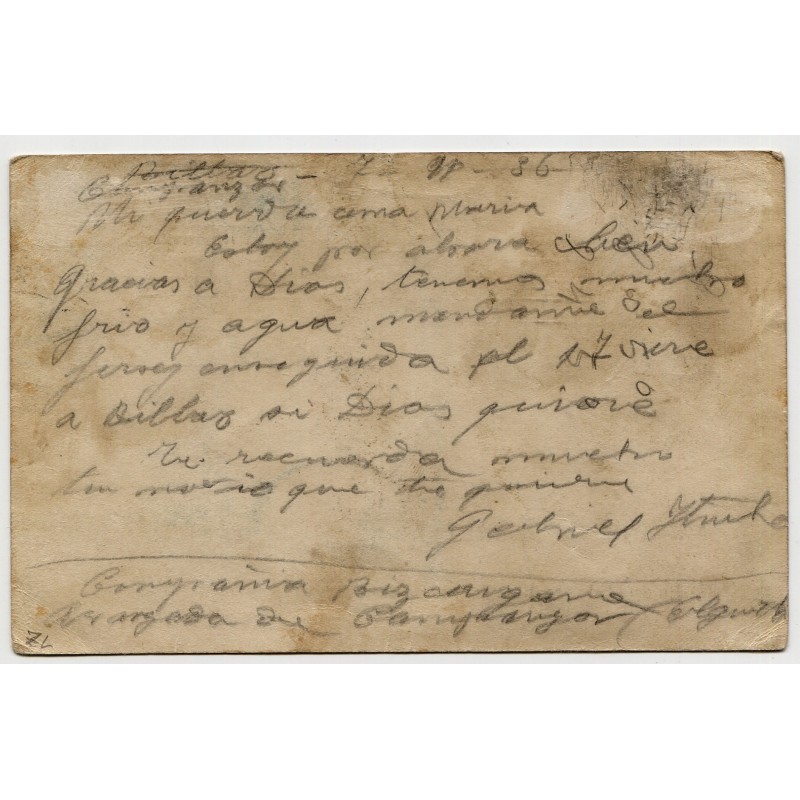 Bilbao - 7 - 36
Campanzar
Mi querida ama Maria
Estoy por ahora bien
Gracias a Dios, tenemos mucho
frio y agua mandame el
Jersey enseguida el 17 vere
a Bilbao si Dios quiere
Te recuerda mucho
tu novio que te quiere
Gabriel
Compañia
Avanzada de Campanzar Elgueta
ZL